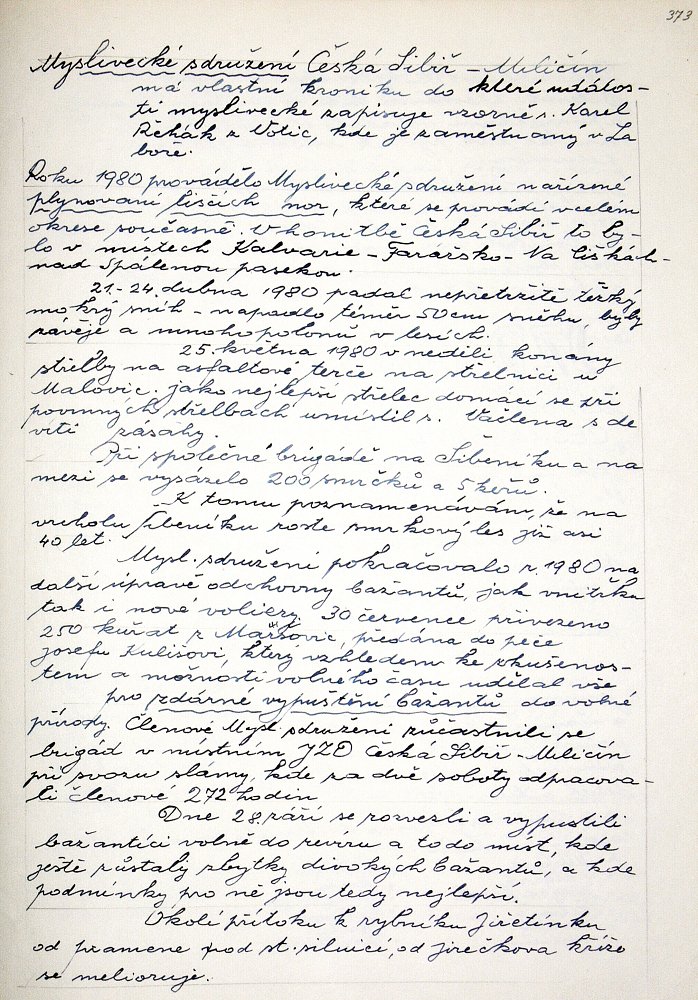 373
Myslivecké sdružení Česká Sibiř - Miličín
má vlastní kroniku do které událos-
ti myslivecké zapisuje vzorně s. Karel
Řehák z Votic, kde je zaměstnaný v Ta
boře.
Roku 1980 provádělo Myslivecké sdružení nařízené
plynování liščích nor, které se provádí v celém
okrese současně. V honitbě Česká Sibiř to by-
lo v místech Kalvarie - Farářsko - Na liškách-
nad Spálenou pasekou.
21.-24. dubna 1980 padal nepřetržitě těžký
mokrý sníh - napadlo téměř 50 cm sněhu, byly
závěje a mnoho polomů v lesích.
25. května 1980 v neděli konány
střelby na asfaltové terče na střelnici u
Malovic. jako nejlepší střelec domácí se při
povinných střelbách umístil s. Vačlena s de
víti zásahy.
Při společné brigádě na Šibeníku a na
mezi se vysázelo 200 smrčků a 5 keřů.
K tomu poznamenávám, že na
vrcholu Šibeníku roste smrkový les již asi
40 let.
Mysl. sdružení pokračovalo r. 1980 na
další úpravě odchovny bažantů, jak vnitřku
tak i nové voliery. 30 července přivezeno
250 kuřat z Maršovic, předána do péče
Josefu Kulišovi, který vzhledem ke zkušenos-
tem a možnosti volného času udělal vše
pro zdárné vypuštění bažantů do volné
přírody. Členové Mysl sdružení zůčastnili se
brigád v místním JZD Česká Sibiř - Miličín
při svozu slámy, kde za dvě soboty odpracova-
li členové 272 hodin
Dne 28. září se rozvezli a vypustili
bažantíci volně do revíru a to do míst, kde
ještě zůstaly zbytky divokých bažantů, a kde
podmínky pro ně jsou tedy nejlepší.
Okolí přítoku k rybníku Jiřetínku
od pramene pod st. silnicí, od Jirečkova kříže
se melioruje.